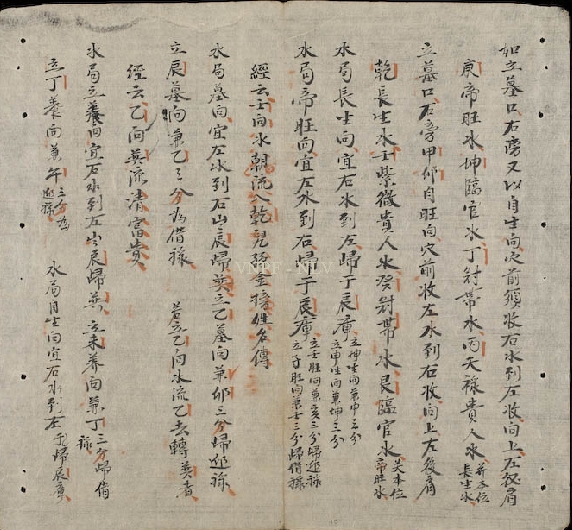 如立墓口右旁又以自生向穴前須收右水到左收向上左
庚帝旺水坤臨官水丁封帶水丙天祿貴人水 并本位長生水
立墓口右旁甲卯自旺向穴前收左水到右收向上左後肩
乾長生水壬紫微貴人水癸封帶水艮臨官水 吳本位帝旺水
水局長生向宜右水到左歸丁辰庫 立坤生向兼申三分 立申生向兼坤三分
水局帝旺向宜左水到右歸于辰庫 立壬旺向兼亥三分歸 祿 立子旺向兼壬三分歸借祿
經云壬向水朝流入乾兒孫金榜姓名傳
水局墓向宜左水到右出辰歸 立乙墓向兼卯三分歸 祿
立辰墓向兼乙三分為借祿 若立乙向水流乙去轉 者
經云乙向 流清富貴
水局立養向宜右水到左出辰歸 立未養向兼丁 三分歸借祿
立丁養向兼午 三分為 祿 水局自生向宜右水到左 歸辰庫